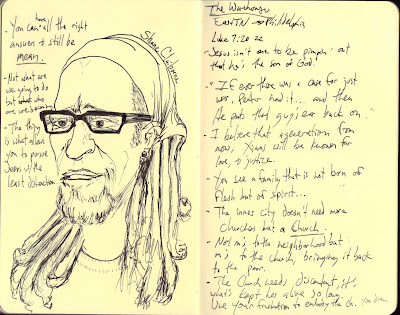 You can have all the right
answers & still be
mean.
- Not what are
we going to do
but who
are we becoming
- The thing
is what allows
you to pursue
Jesus w/ the
least distraction
Shane Claiborne
The Warehouse
East TN → Philidelphia
Luke 7:20 22
- Jesus isn't one to be pimpin' out
that he's the son of God.
- "If ever there was a case for just
war, Peter had it... and then
He puts that guy's ear back on."
- I believe that a generation from
now, Xians will be known for
love & justice.
- You see a family that is not born of
flesh but of spirit...
- The inner city doesn't need more
churches but a Church.
- Not m's to the neighborhood but
m's to the church, bringing it back
to the poor.
- The Church needs discontent, it's
what's kept her alive so long.
Use your frustration to embody the